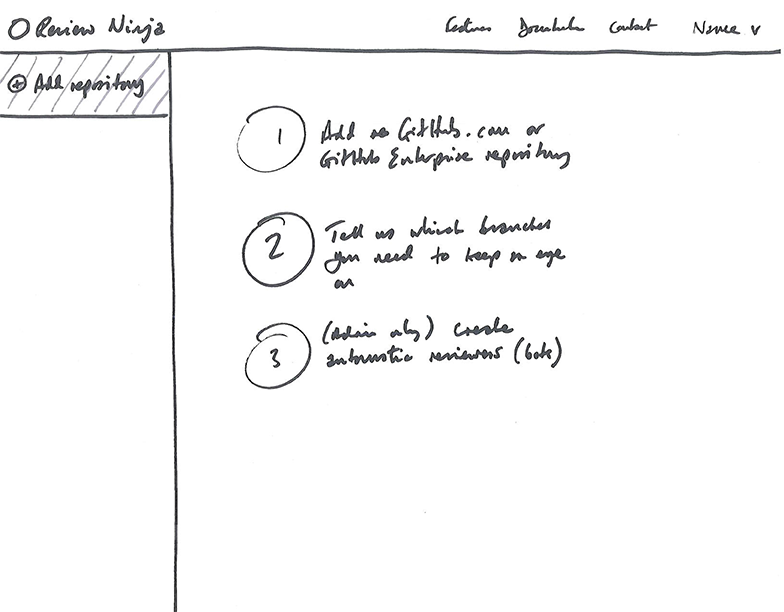 Review Ninja
Features Downloads Contact Name v
+ Add repository
1
Add a GitHub.com or
GitHub Enterprise repository
2
Tell us which branches
you need to keep an eye
on
3
(Admin only) create
automatic reviewers (bots)